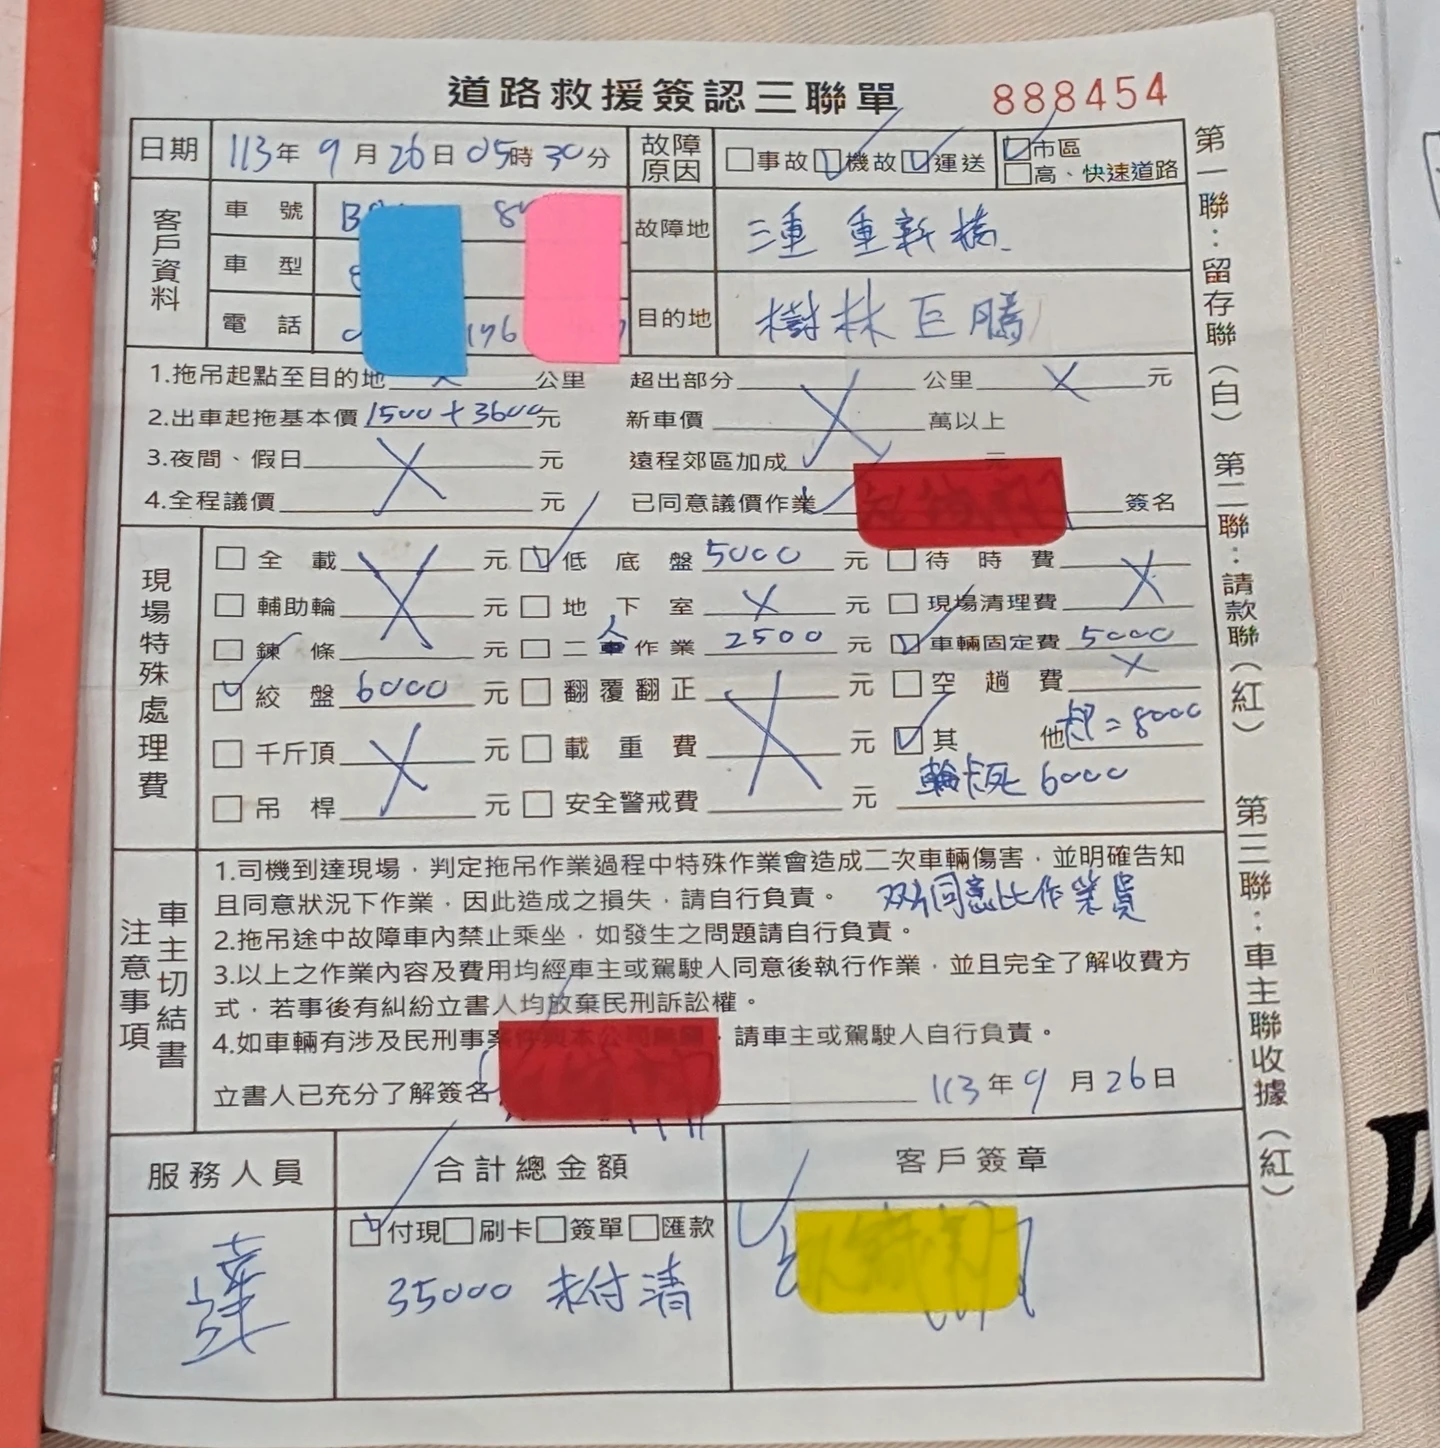 道路救援簽認三聯單 888454
日期 113年9月26日05時30分 故障原因 事故 機故 運送 市區 高、快速道路
客戶資料
車號
車型
電話
故障地 三重 重新橋
目的地 樹林巨騰
1.拖吊起點至目的地 公里 超出部分 公里 元
2.出車起拖基本價 1500+3600元 新車價 萬以上
3.夜間、假日 元 遠程郊區加成 元
4.全程議價 元 已同意議價作業 簽名
現場特殊處理費
全載 元 低底盤 5000 元 待時費
輔助輪 元 地下室 元 現場清理費
鍊條 元 二人作業 2500 元 車輛固定費 5000
絞盤 6000 元 翻覆翻正 元 空趟費
千斤頂 元 載重費 元 其他 =8000
吊桿 元 安全警戒費 元 輪卡死 6000
車主切結書注意事項
1.司機到達現場,判定拖吊作業過程中特殊作業會造成二次車輛傷害,並明確告知
且同意狀況下作業,因此造成之損失,請自行負責。 双方同意此作業費
2.拖吊途中故障車內禁止乘坐,如發生之問題請自行負責。
3.以上之作業內容及費用均經車主或駕駛人同意後執行作業,並且完全了解收費方
式,若事後有糾紛立書人均放棄民刑訴訟權。
4.如車輛有涉及民刑事案件與本公司無關,請車主或駕駛人自行負責。
立書人已充分了解簽名 113年9月26日
服務人員 合計總金額 客戶簽章
付現 刷卡 簽單 匯款
達 35000 未付清
第一聯:留存聯(白) 第二聯:請款聯(紅) 第三聯:車主聯收據(紅)